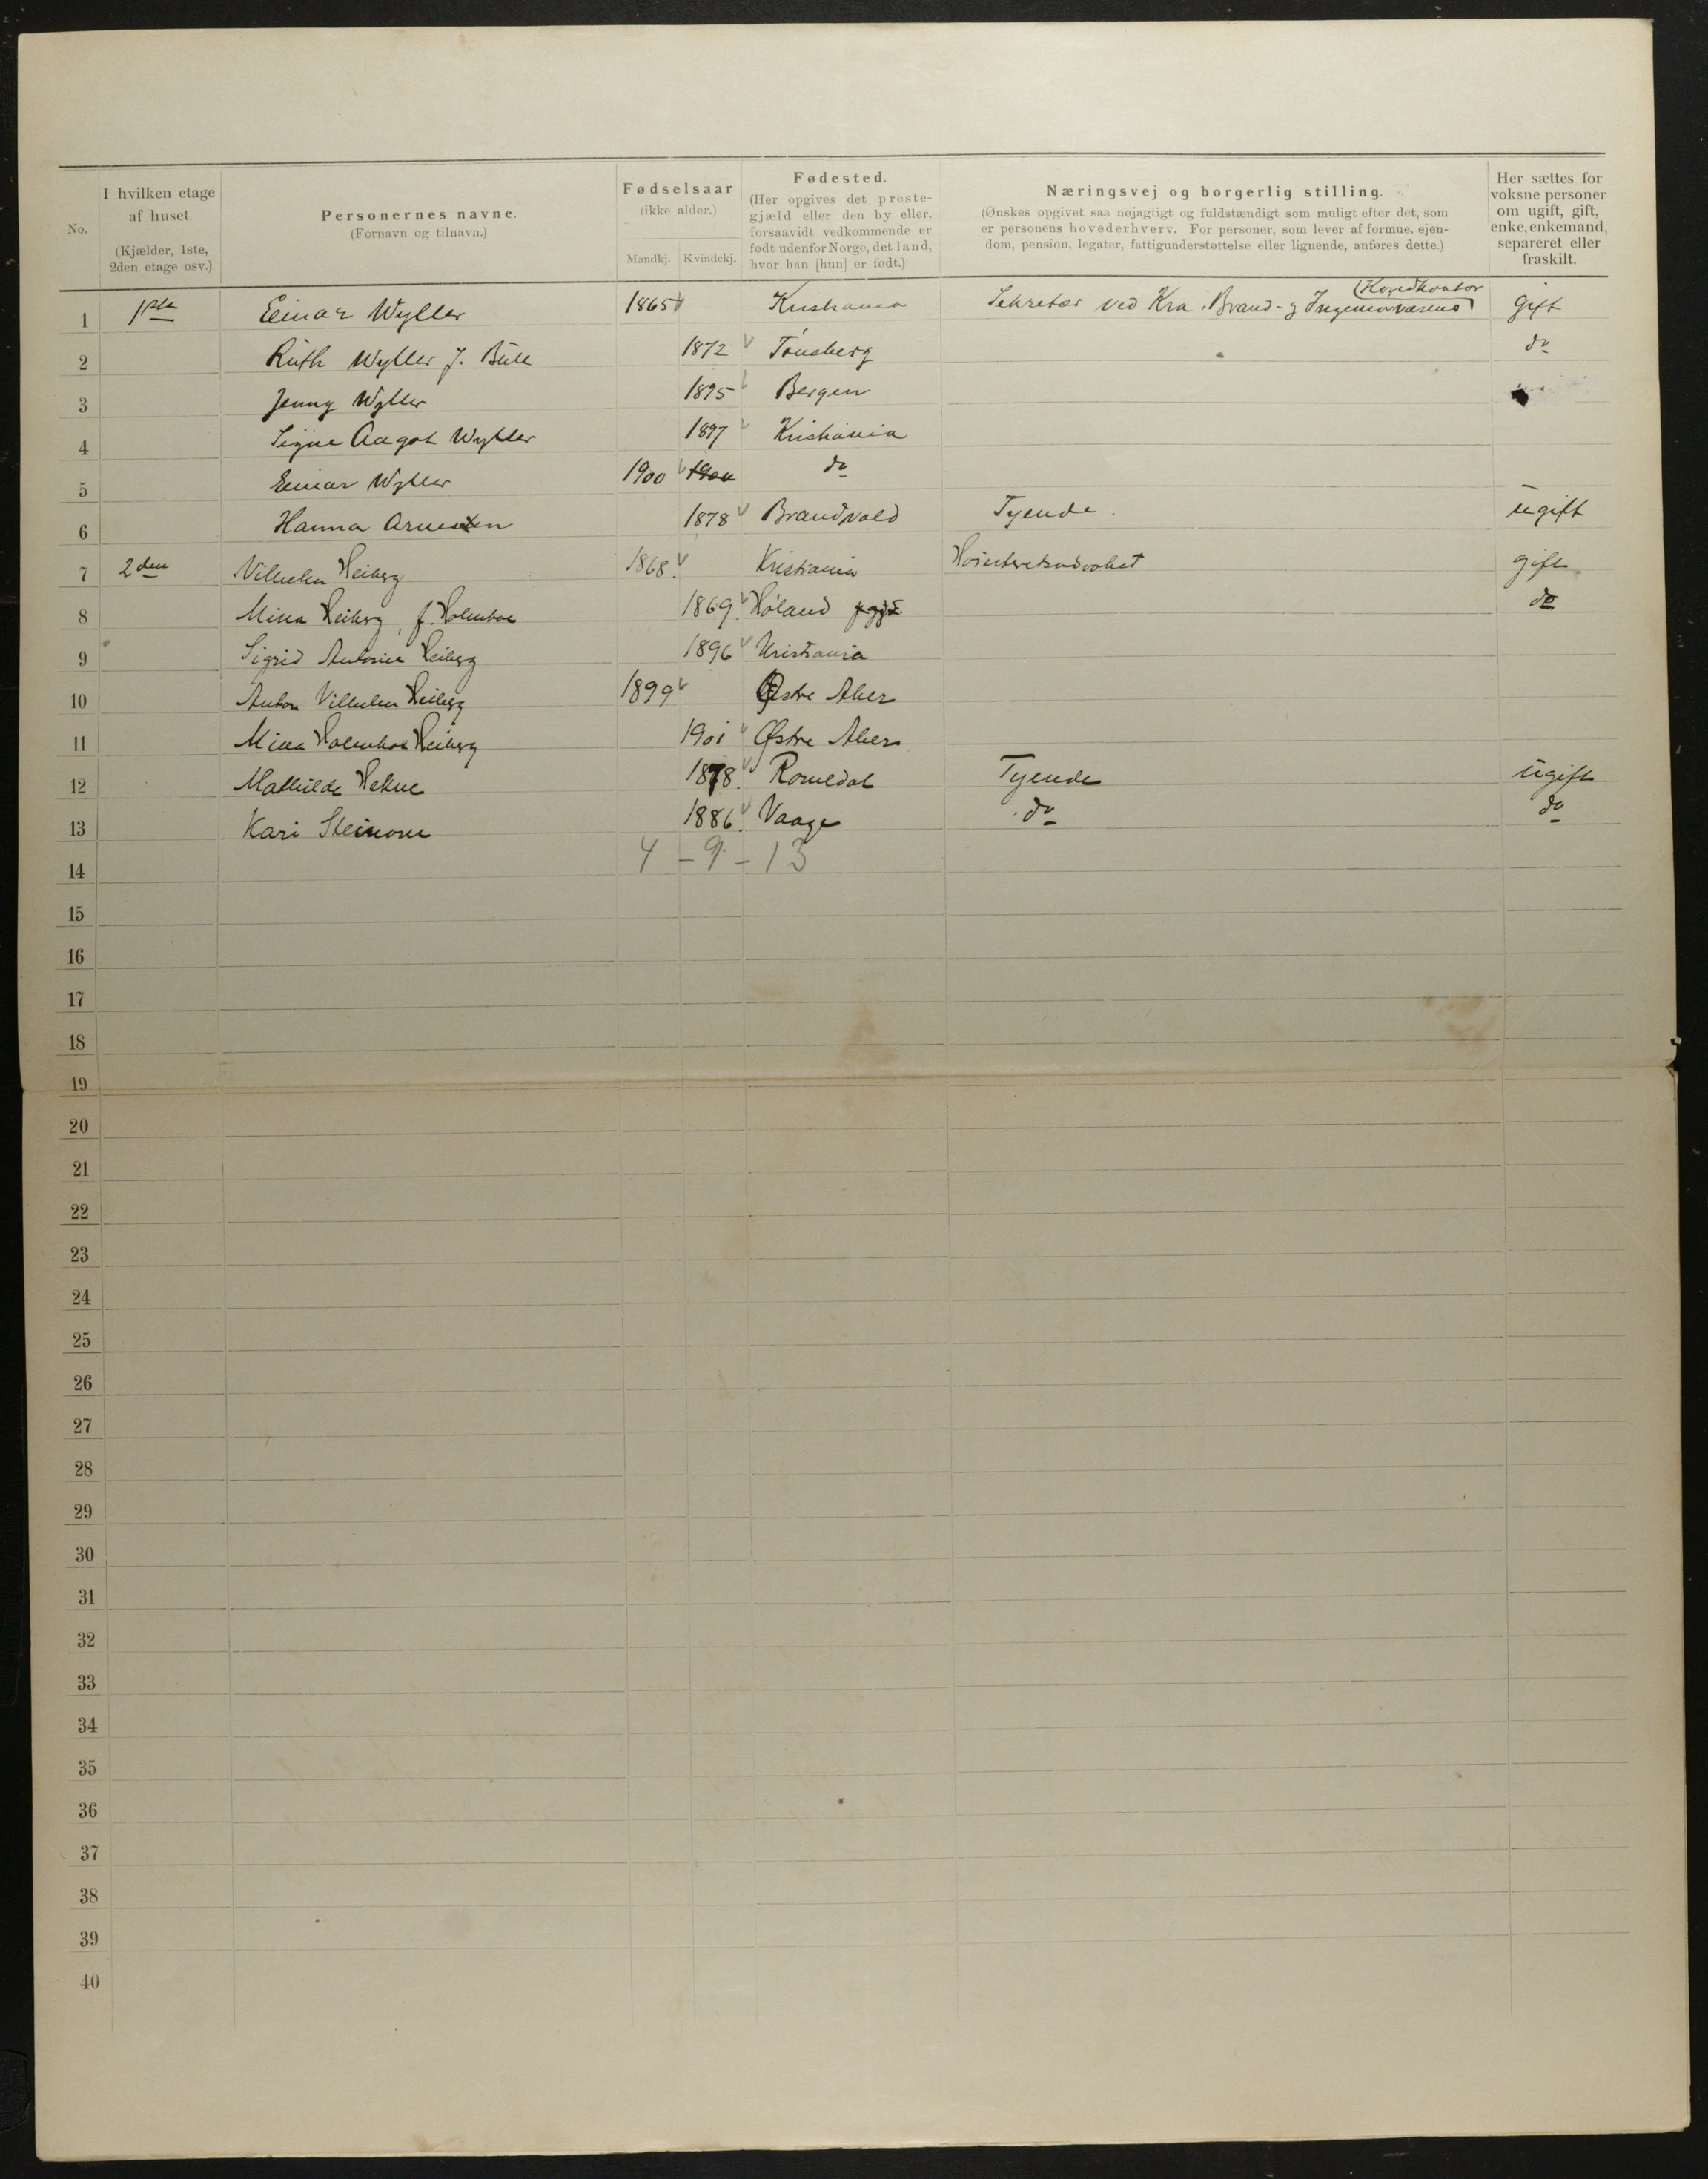 No.
I hvilken etage
af huset.
(Kjælder, 1ste,
2den etage osv.)
Personernes navne.
(Fornavn og tilnavn.)
Fødselsaar
(ikke alder.)
Mandkj. Kvindekj.
Fødested.
(Her opgives det preste-
gjæld eller den by eller,
forsaavidt vedkommende er
født udenfor Norge, det land,
hvor han [hun] er født.)
Næringsvej og borgerlig stilling.
(Ønskes opgivet saa nøjagtigt og fuldstændigt som muligt efter det, som
er personens hovederhverv. For personer, som lever af formue, ejen-
dom, pension, legater, fattigunderstøttelse eller lignende, anføres dette.)
Her sættes for
voksne personer
om ugift, gift,
enke, enkemand,
separeret eller
fraskilt.
1 1ste Einar Wyller 1865 Kristiania Sekretær ved Kra. Brand- og Ingeniørvæsens Hovedkontor gift
2 Ruth Wyller f. Bull 1872 Tønsberg do
3 Jenny Wyller 1895 Bergen
4 Signe Aagot Wyller 1897 Kristiania
5 Einar Wyller 1900 1900 do
6 Hanna Arnesen 1878 Brandvold Tyende. ugift
7 2den Vilhelm Heiberg 1868. Kristiania Høiesteretsadvokat gift
8 Mina Heiberg, f. Holmboe 1869. Høland pgjd. do
9 Sigrid Antonie Heiberg 1896 Kristiania
10 Anton Vilhelm Heiberg 1899 Østre Aker
11 Mina Holmboe Heiberg 1901 Østre Aker
12 Mathilde Hekne 1878. Romedal Tyende ugift
13 Kari 1886. Vaage do do
14 4 - 9 - 13
15
16
17
18
19
20
21
22
23
24
25
26
27
28
29
30
31
32
33
34
35
36
37
38
39
40